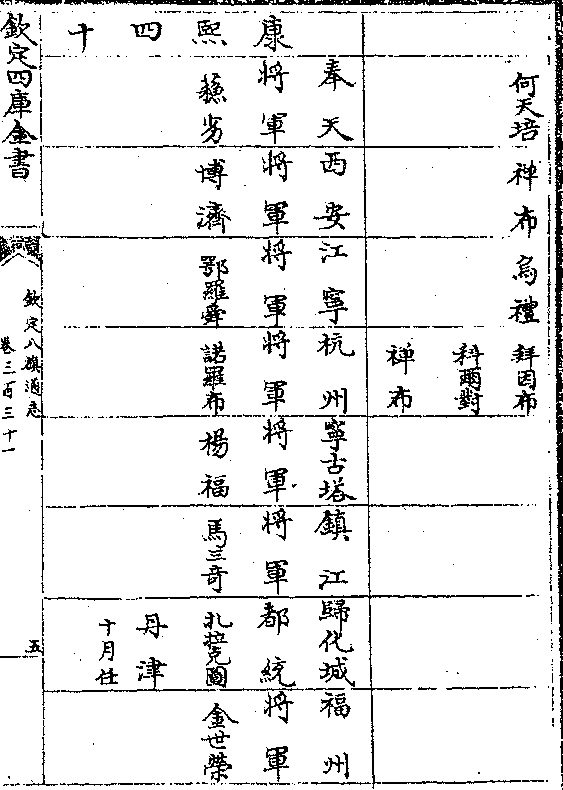 何天培 禅布 烏禮 拜因布
科爾對
禅布
康熙四十
奉天 西安 江寧 杭州 寧古塔 鎮江 歸化城 福州
將軍 將軍 將軍 將軍 將軍 將軍 都統 將軍
蘓努 博濟 鄂羅舜 諾羅布 楊福 馬三奇 扎拉克圖 金世榮
丹津
十月任
欽定四庫全書
欽定八旗通志
卷三百三十一
五